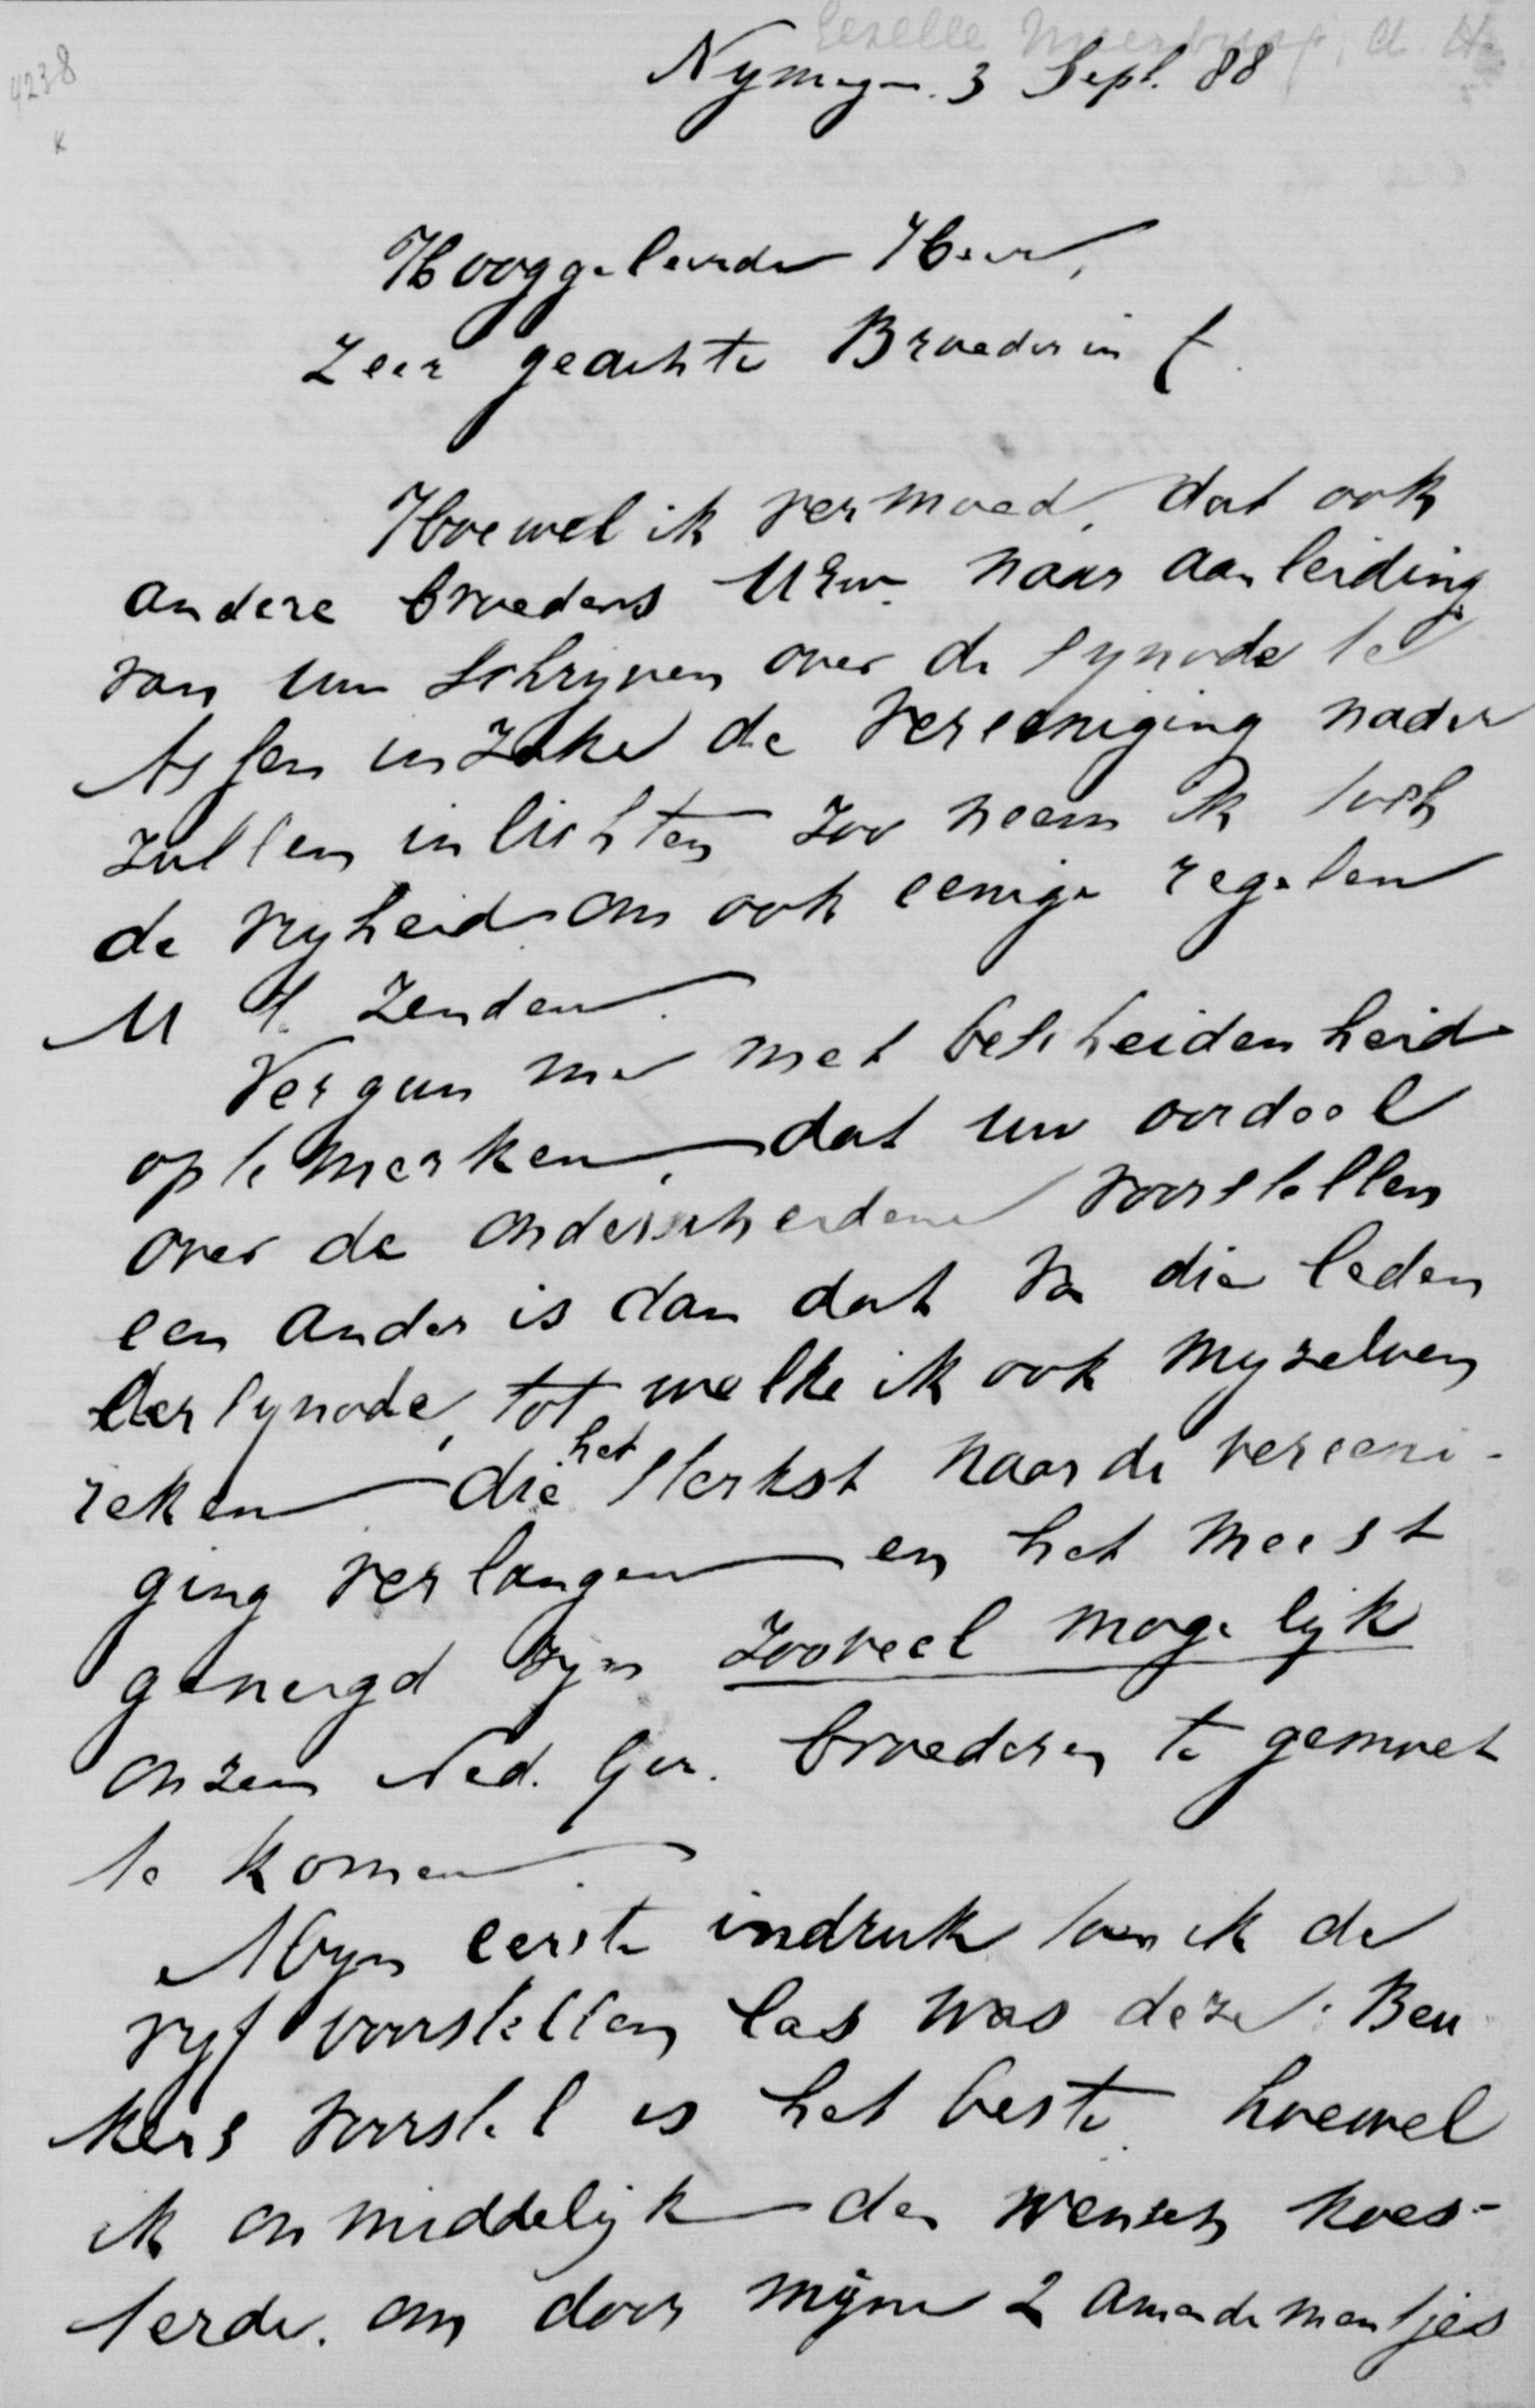 Gezelle Meerburg, A. H.
4238
K
Nymegen. 3 Sept. 88
Hooggeleerde Heer,
Zeer geachte Broeder in C.
Hoewel ik vermoed, dat ook
andere broeders UEw. naar aanleiding
van uw schrijven over de synode te
Assen inzake de Vereeniging nader
zullen inlichten zoo neem ik toch
de vrijheid om ook eenige regelen
U te zenden.
Vergun me met bescheidenheid
op te merken, dat uw oordeel
over de onderscheidene voorstellen
een ander is dan dat van die leden
der synode, tot welke ik ook myzelven
reken die het sterkst naar de vereeni-
ging verlangen en het meest
geneigd zyn zooveel mogelijk
onzen Ned. Ger. broederen te gemoet
te komen.
Myn eerste indruk toen ik de
vyf voorstellen las was deze: Beu
kers voorstel is het beste, hoewel
ik onmiddelijk den wensch koes-
terde, om door mijne 2 amendementjes